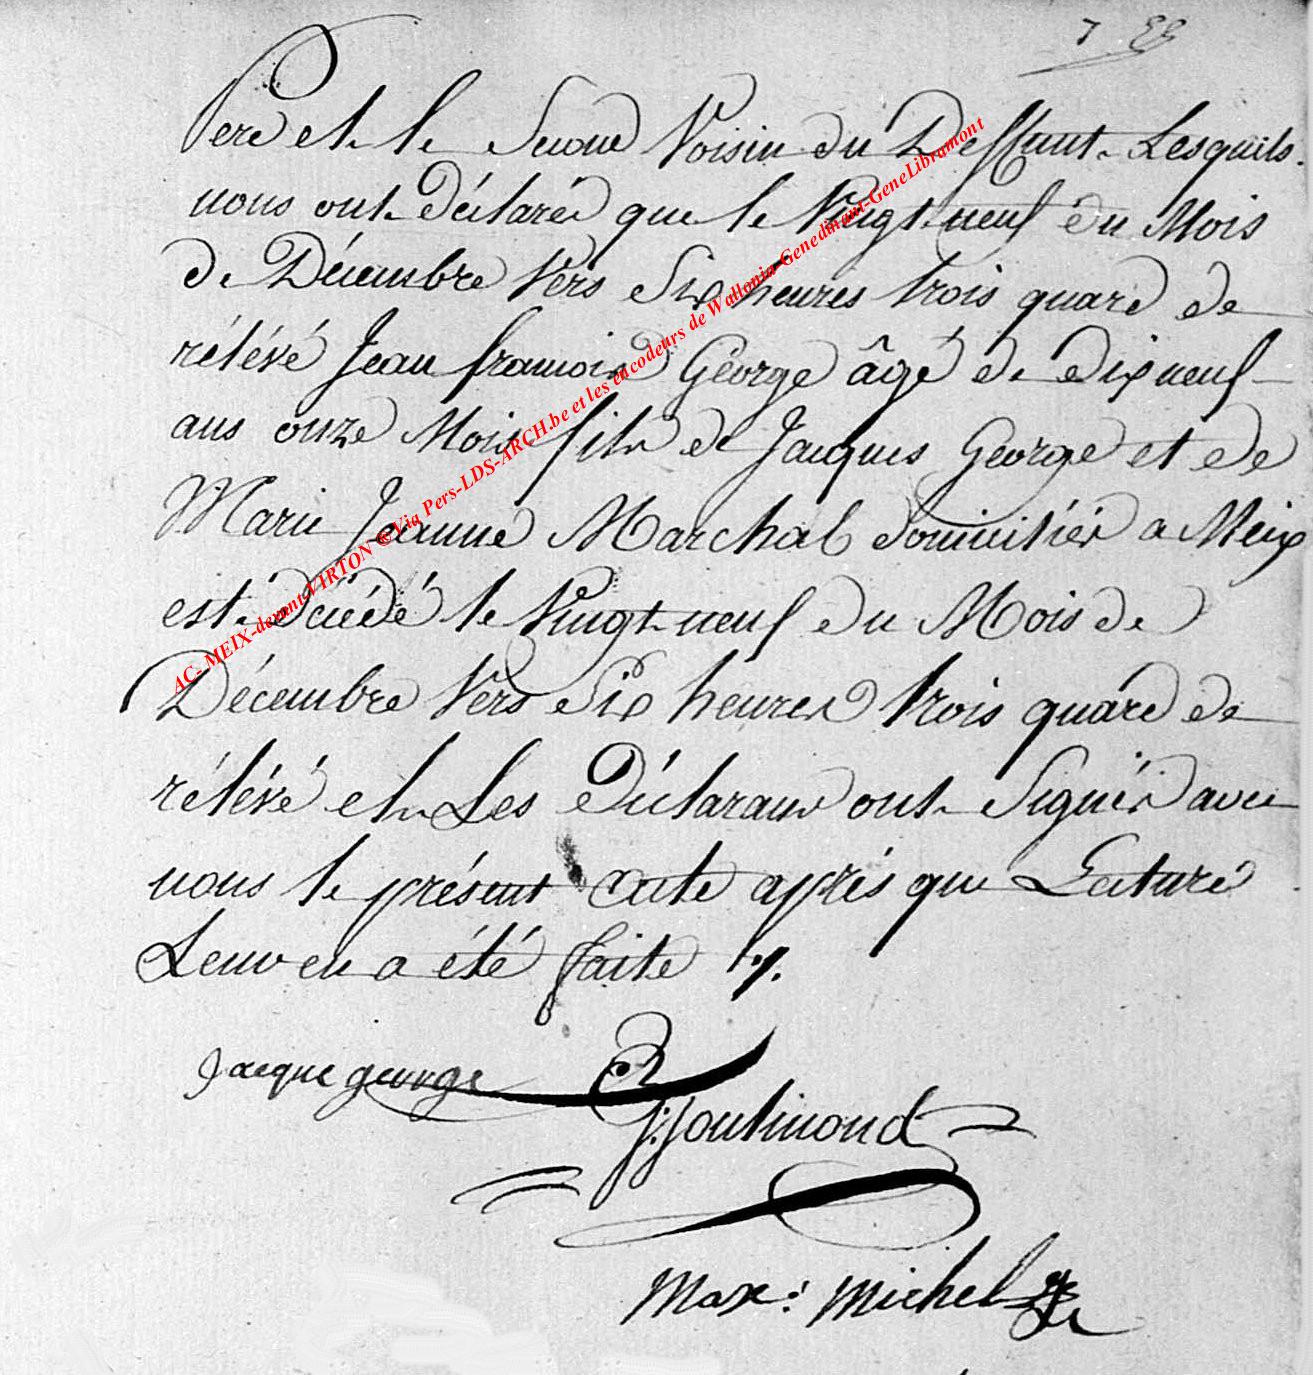 Pere et le Second Voisin du Deffunt Lesquels
nous ont Déclarés que le Vingt neuf du Mois
de Décembre Vers Six heures trois quard de
rélévé Jean francois George âgé de dix neuf
ans onze Mois fils de Jacques George et de
Marie Jeanne Marchal domiciliés a Meix
est décédé le Vingt neuf du Mois de
Décembre Vers Six heures trois quard de
rélévé et Les Déclarans ont Signés avec
nous le présent acte après que Lecturé
Leur en a été faite
jacque george
Max: Michel
AC- MEIX-devant-VIRTON ®Via Pers-LDS-ARCH.be et les encodeurs de Wallonia-Genedinant-GeneLibramont